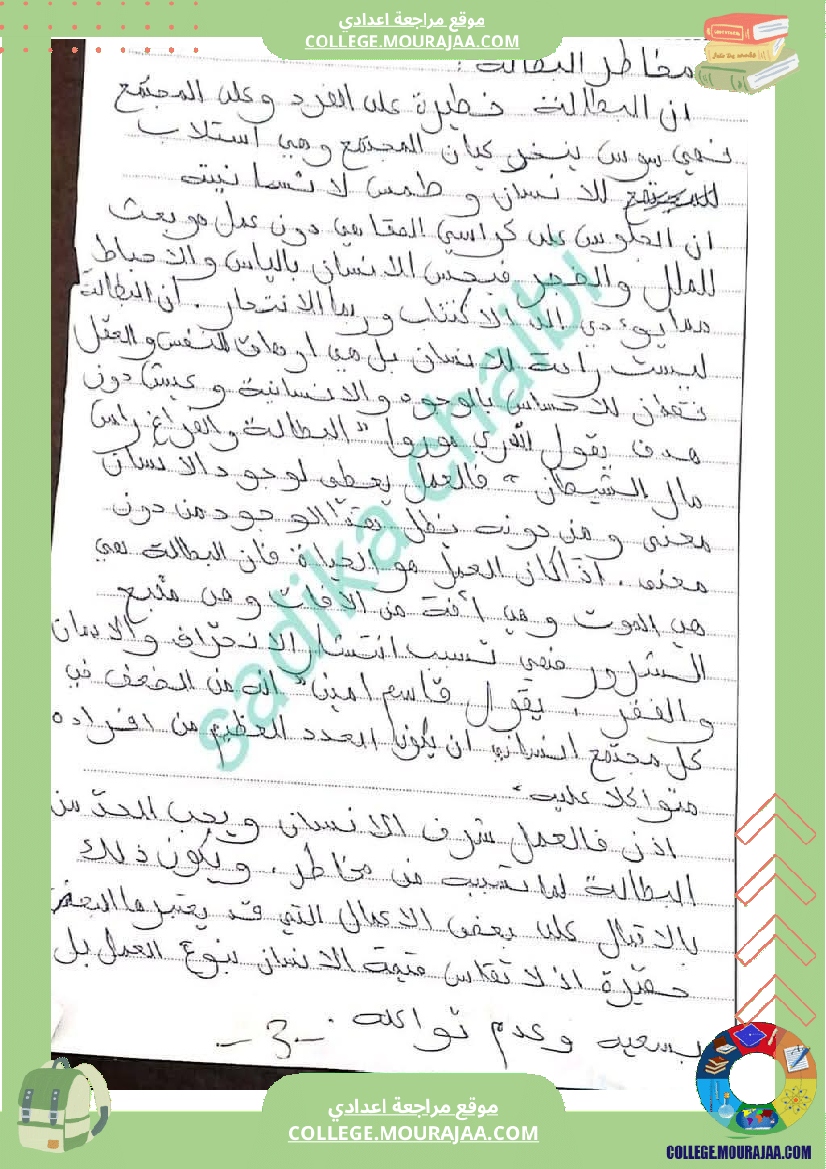 موقع مراجعة اعدادي
COLLEGE.MOURAJAA.COM
مخاطر البطالة :
ان البطالة خطيرة على الفرد وعلى المجتمع
فهي سوس ينخر كيان المجتمع وهي استلاب
للانسان و طمس لانسانيته
ان الجلوس على كراسي المقاهي دون عمل هو بعث
للملل والضجر فيحس الانسان بالياس والاحباط
مما يؤدي الى الاكتئاب و ربما الانتحار . ان البطالة
ليست راحة للانسان بل هي ارهاق للنفس و العقل
فقدان للاحساس بالوجود والانسانية و عيش دون
هدف يقول اندري موروا " البطالة و الفراغ راس
مال الشيطان " فالعمل يعطي لوجود الانسان
معنى و من دونه نظل الوجود من دون
معنى . اذا كان العمل هو الحياة فان البطالة هي
هي الموت و هي آفة من الافات و هي منبع
الشرور فهي تسبب انتشار الانحراف والادمان
و الفقر ، يقول قاسم امين " انه من الضعف في
كل مجتمع انساني ان يكون العدد العظيم من افراده
متواكلا عليه "
اذن فالعمل شرف الانسان و يجب الحد من
البطالة لما تسببه من مخاطر . ويكون ذلك
بالاقبال على بعض الاعمال التي قد يعتبرها البعض
حقيرة اذ لا تقاس قيمة الانسان بنوع العمل بل
بسعيه وعدم تواكله .
-3-
sadika chaibi
موقع مراجعة اعدادي
COLLEGE.MOURAJAA.COM
COLLEGE.MOURAJAA.COM